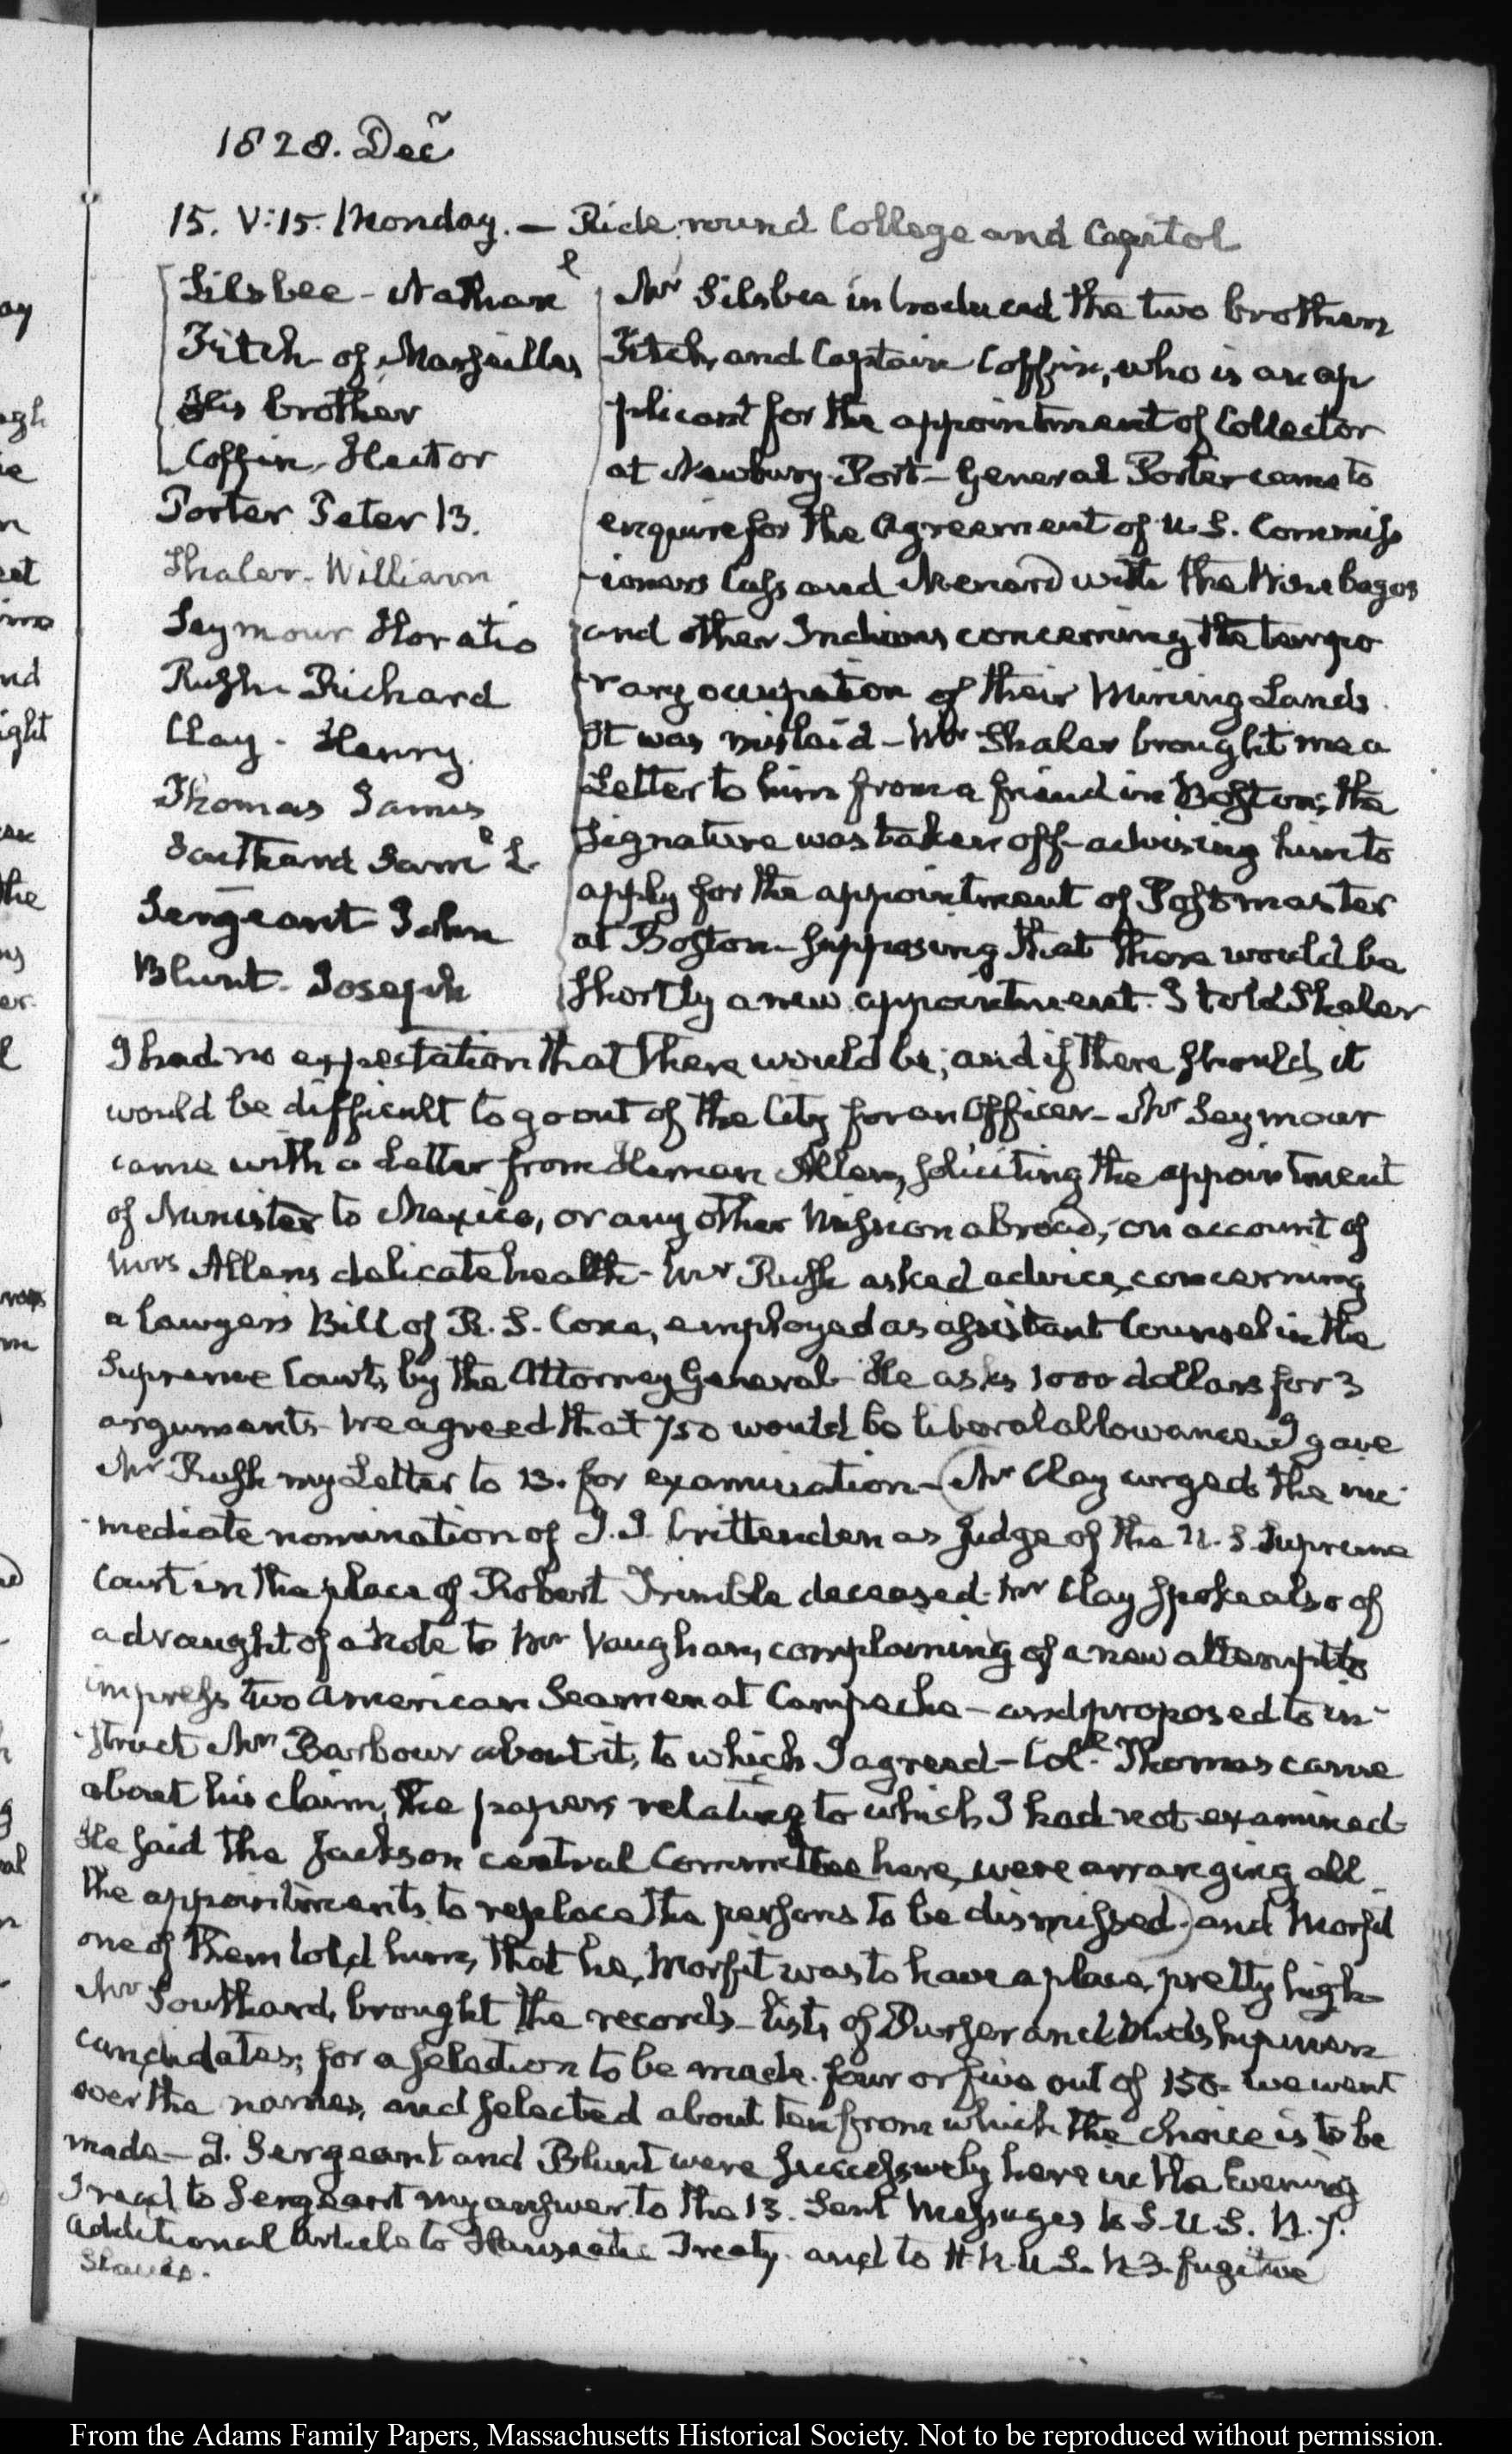 1828. Decr
15. V:15. Monday. — Ride round College and Capitol
Silsbee - Nathanl
Fitch of Marseilles
His brother
Coffin - Hector
Porter Peter B.
Shaler - William
Seymour Horatio
Rush - Richard
Clay - Henry.
Thomas James
Southard Saml L.
Sergeant John
Blunt - Joseph
Mr Silsbee introduced the two brothers
Fitch, and Captain Coffin, who is an ap
plicant for the appointment of Collector
at Newbury-Port - General Porter came to
enquire for the Agreement of U.S. Commiss
-ioners Cass and Menard with the Winebagos
and other Indians concerning the tempo
-rary occupation of their Mining Lands.
It was mislaid - Mr Shaler brought me a
Letter to him from a friend in Boston; the
Signature was taken off - advising him to
apply for the appointment of Postmaster
at Boston - supposing that there would be
shortly a new appointment. I told Shaler
I had no expectation that there would be; and if there should, it
would be difficult to go out of the City for an Officer - Mr Seymour
came with a Letter from Heman Allen, soliciting the appointment
of Minister to Mexico, or any other Mission abroad, on account of
Mrs Allens delicate health - Mr Rush asked advice, concerning
a Lawyers Bill of R. S. Coxe, employed as assistant Counsel in the
Supreme Court, by the Attorney General - He asks 1000 dollars for 3
arguments - We agreed that 750 would be liberal allowance. I gave
Mr Rush my Letter to 13. for examination - Mr Clay urged the im
-mediate nomination of J. J. Crittenden as Judge of the U.S. Supreme
Court in the place of Robert Trimble deceased - Mr Clay spoke also of
a draught of a Note to Mr Vaughan, complaining of a new attempt to
impress two American Seamen at Campeche - and proposed to in-
-struct Mr Barbour about it, to which I agreed - Coll Thomas came
about his claim, the papers relating to which I had not examined-
He said the Jackson central Committee here, were arranging all
the appointments to replace the persons to be dismissed, and Morfit
one of them told him, that he, Morfit was to have a place, pretty high-
Mr Southard, brought the records - lists of Purser and Midshipmen
candidates; for a selection to be made. four or five out of 150 - we went
over the names, and selected about ten from which the choice is to be
made - J. Sergeant and Blunt were successively here in the Evening
I read to Sergeant my answer to the 13. Sent Messages to S. U.S. N. 7.
Additional Article to Hanseatic Treaty. and to H.R.U.S. N 3. fugitive
Slaves.
From the Adams Family Papers, Massachusetts Historical Society. Not to be reproduced without permission.